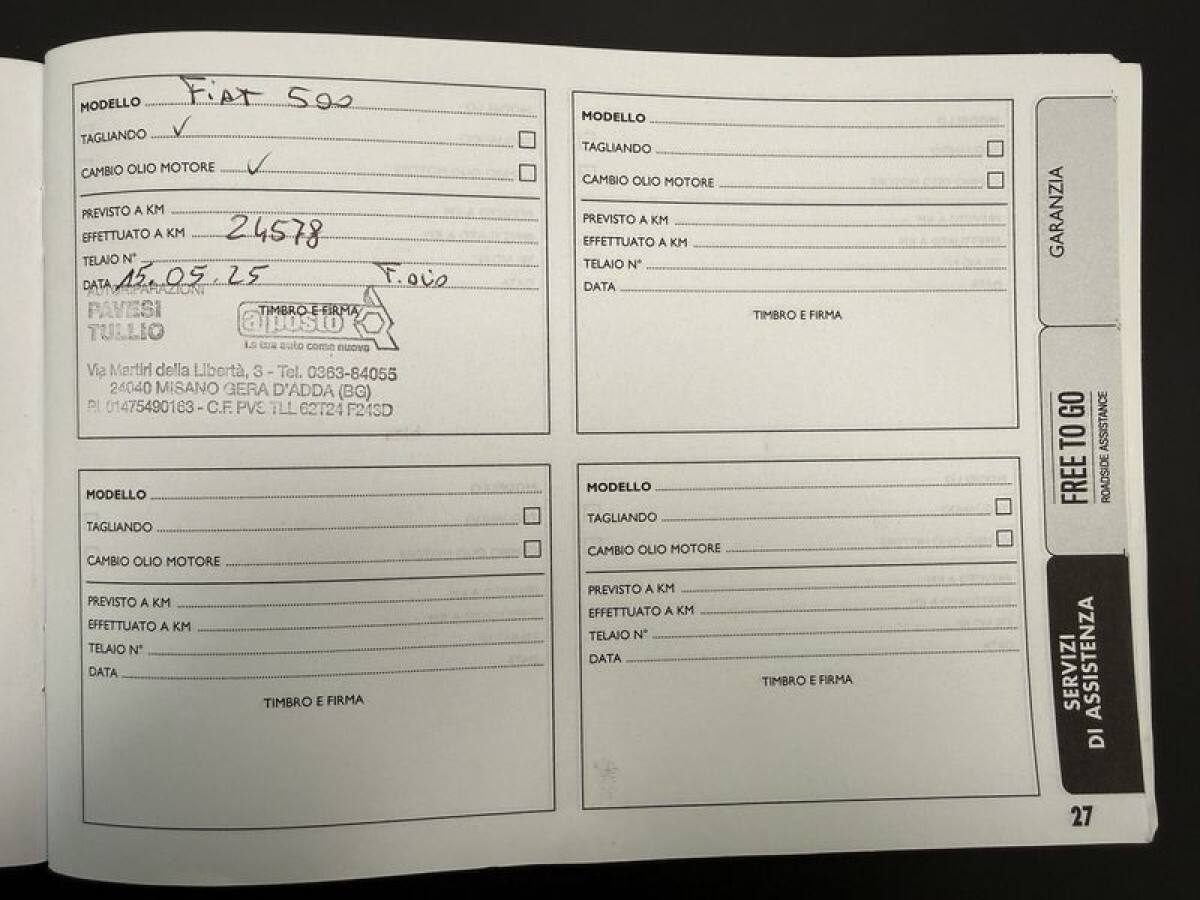 MODELLO Fiat 500
TAGLIANDO ✓
CAMBIO OLIO MOTORE ✓
PREVISTO A KM
EFFETTUATO A KM 24578
TELAIO N°
DATA 15.05.25 F.olio
TIMBRO E FIRMA
AUTORIPARAZIONI
PAVESI
TULLIO
a posto
La tua auto come nuova
Via Martiri della Libertà, 3 - Tel. 0363-84055
24040 MISANO GERA D'ADDA (BG)
P.I. 01475490163 - C.F. PVS TLL 62T24 F243D
MODELLO
TAGLIANDO
CAMBIO OLIO MOTORE
PREVISTO A KM
EFFETTUATO A KM
TELAIO N°
DATA
TIMBRO E FIRMA
MODELLO
TAGLIANDO
CAMBIO OLIO MOTORE
PREVISTO A KM
EFFETTUATO A KM
TELAIO N°
DATA
TIMBRO E FIRMA
MODELLO
TAGLIANDO
CAMBIO OLIO MOTORE
PREVISTO A KM
EFFETTUATO A KM
TELAIO N°
DATA
TIMBRO E FIRMA
GARANZIA
FREE TO GO
ROADSIDE ASSISTANCE
SERVIZI
DI ASSISTENZA
27